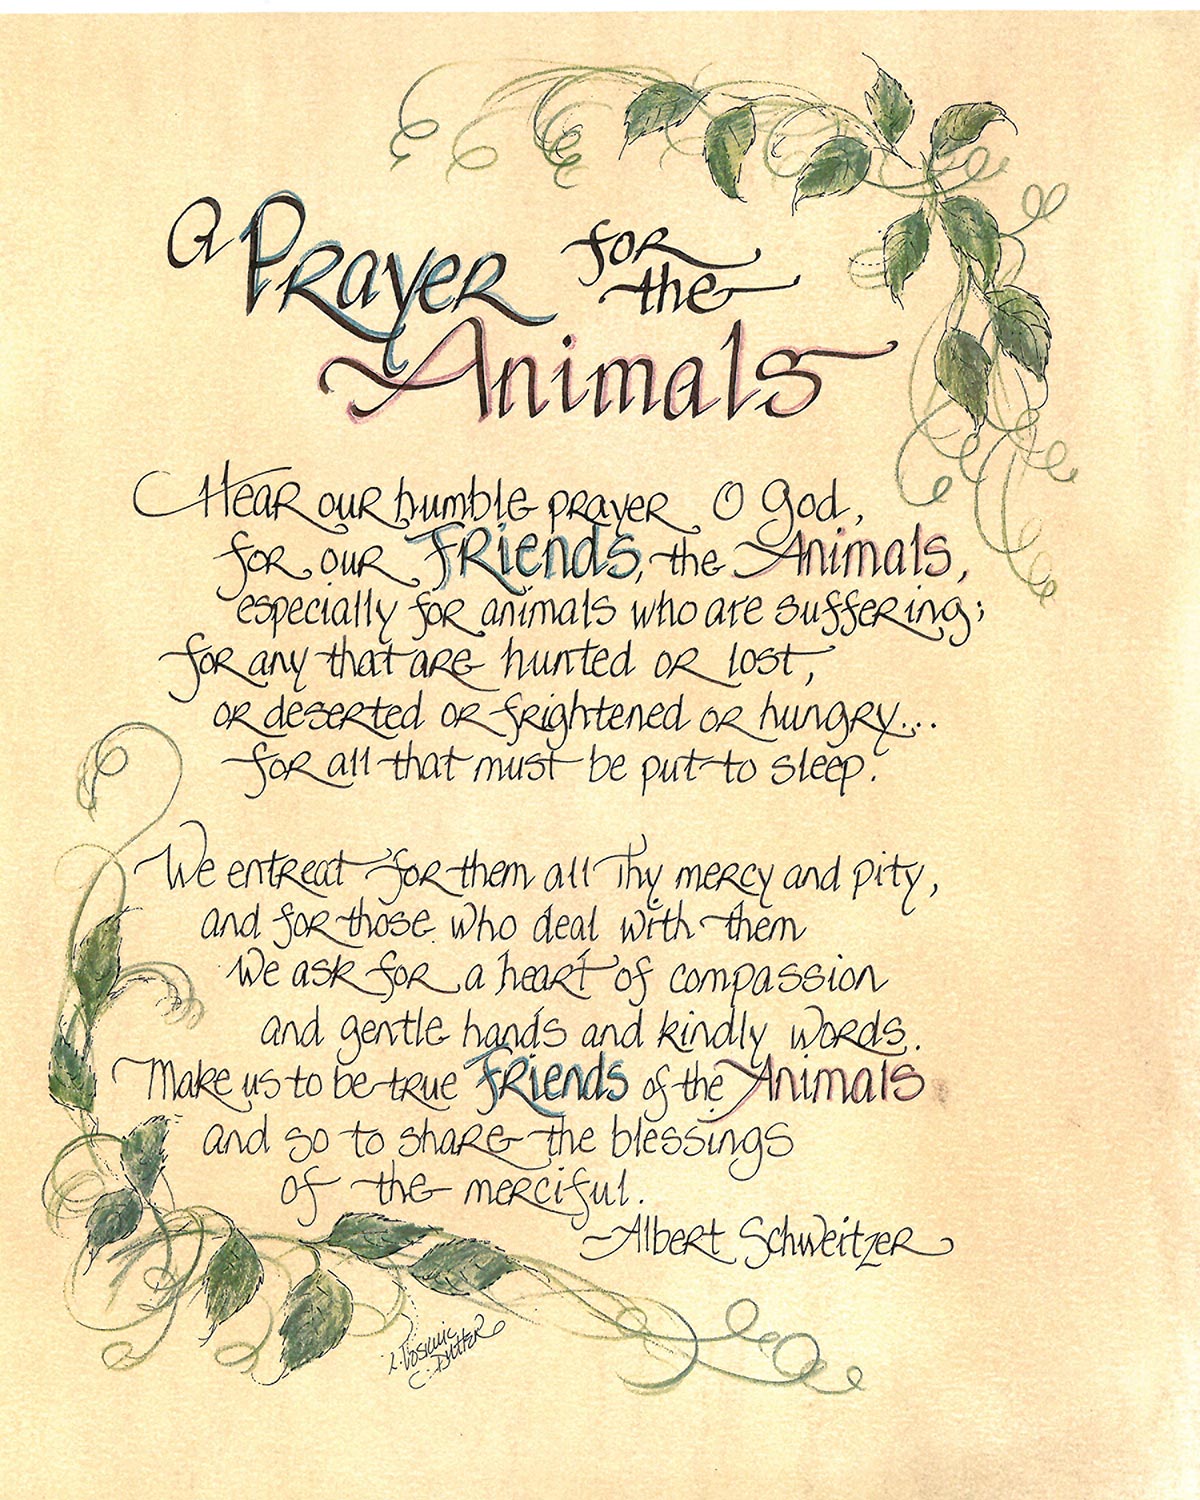 A Prayer for the
Animals
Hear our humble prayer O God,
for our Friends, the Animals,
especially for animals who are suffering;
for any that are hunted or lost,
or deserted or frightened or hungry...
for all that must be put to sleep.
We entreat for them all Thy mercy and pity,
and for those who deal with them
We ask for a heart of compassion
and gentle hands and kindly words.
Make us to be true Friends of the Animals
and so to share the blessings
of the merciful.
~Albert Schweitzer